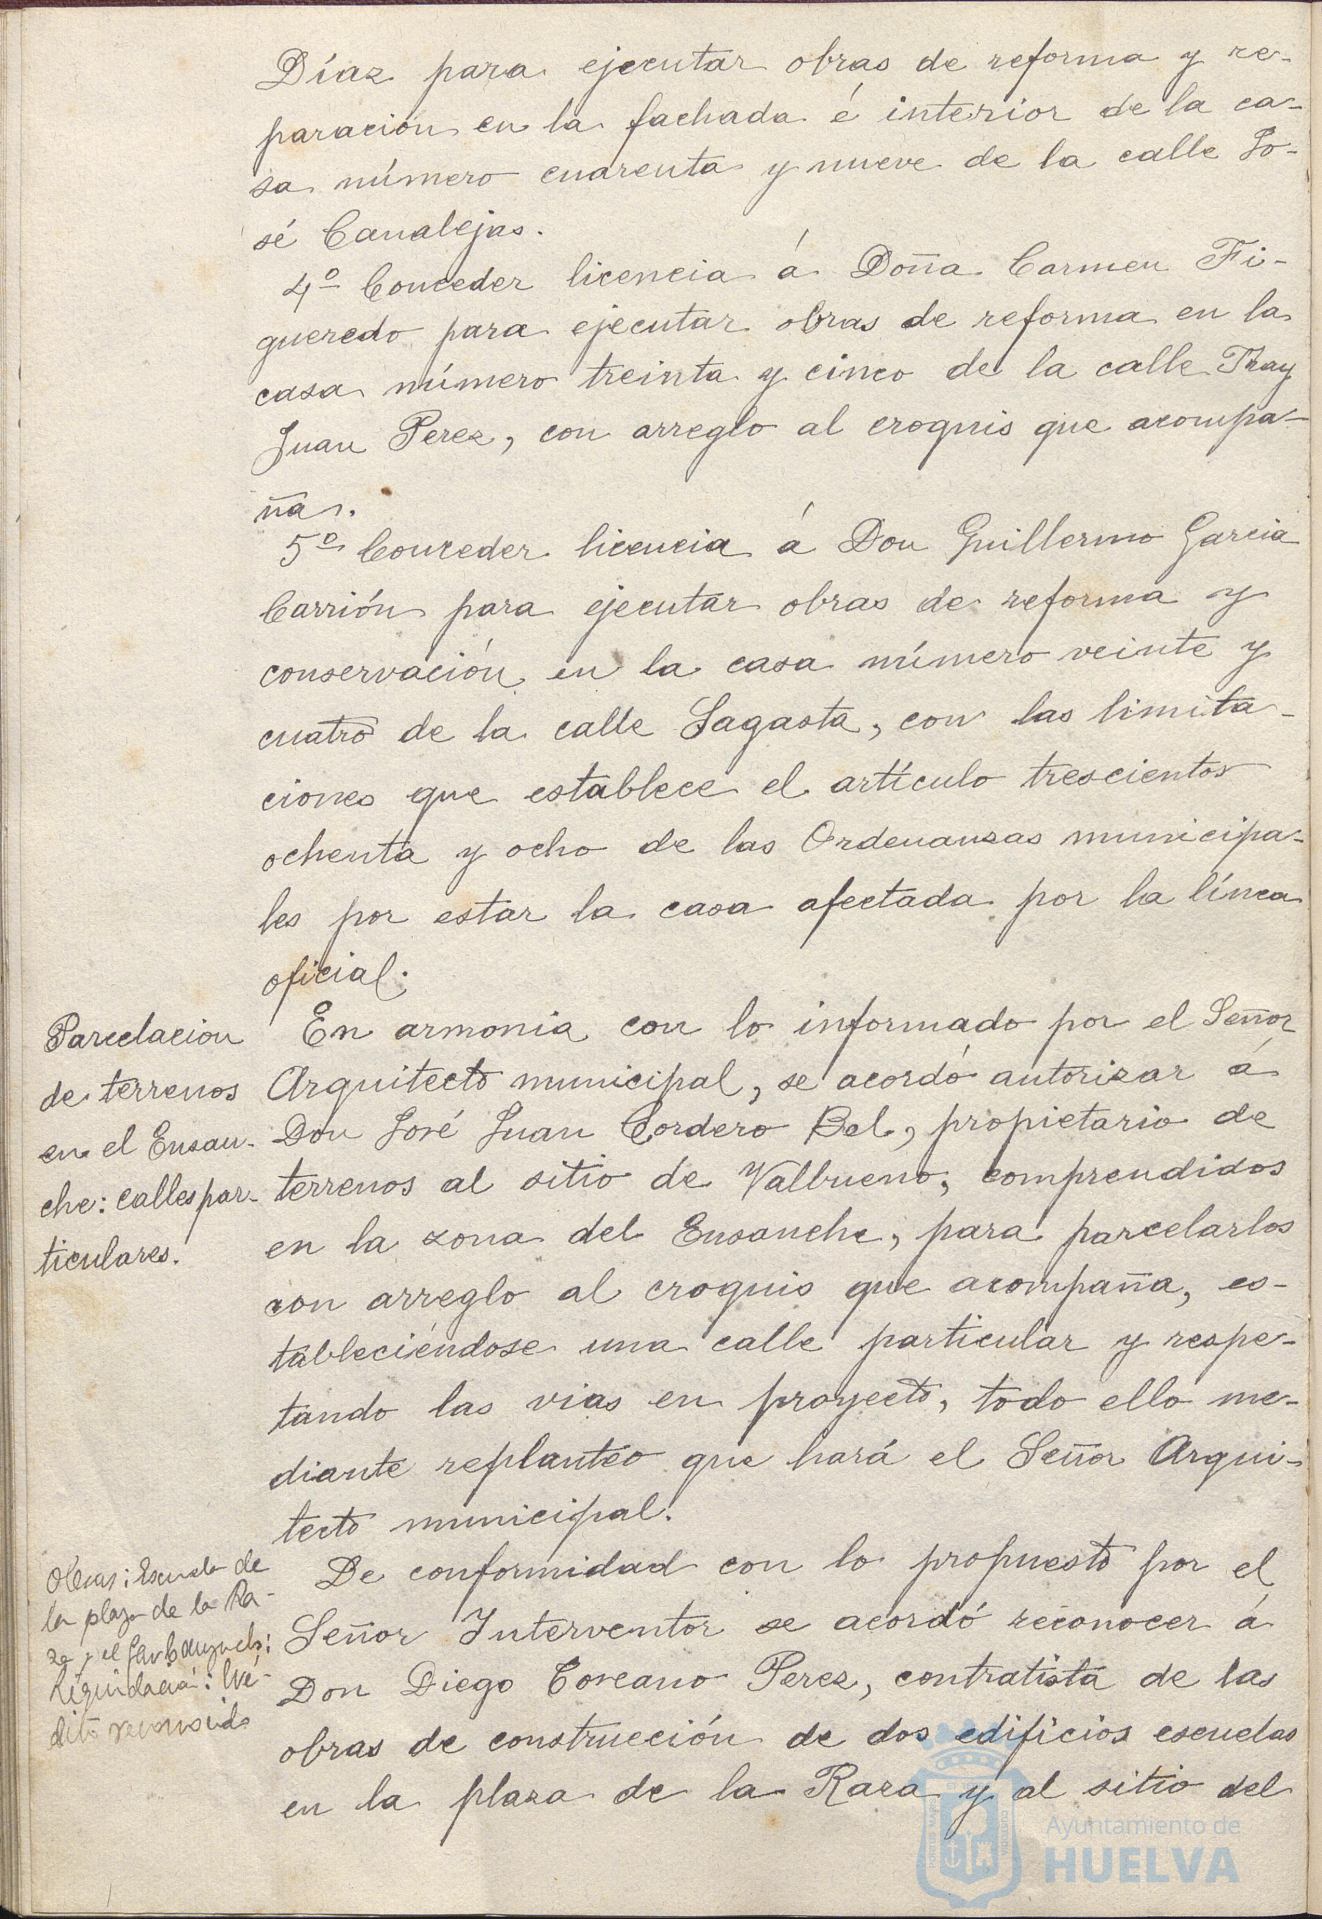 Díaz para ejecutar obras de reforma y re-
paración en la fachada é interior de la ca-
sa número cuarenta y nueve de la calle Jo-
sé Canalejas.
4º Conceder licencia á Doña Carmen Fi-
gueredo para ejecutar obras de reforma en la
casa número treinta y cinco de la calle Fray
Juan Perez, con arreglo al croquis que acompa-
ña.
5º Conceder licencia á Don Guillermo Garcia
Carrión para ejecutar obras de reforma y
conservación en la casa número veinte y
cuatro de la calle Sagasta, con las limita-
ciones que establece el artículo trescientos
ochenta y ocho de las Ordenanzas municipa-
les por estar la casa afectada por la línea
oficial.
Parcelacion
de terrenos
en el Ensan-
che: calles par-
ticulares.
En armonia con lo informado por el Señor
Arquitecto municipal, se acordó autorizar á
Don José Juan Cordero Bel, propietario de
terrenos al sitio de Valbueno, comprendidos
en la zona del Ensanche, para parcelarlos
con arreglo al croquis que acompaña, es-
tableciéndose una calle particular y respe-
tando las vias en proyecto, todo ello me-
diante replanteo que hará el Señor Arqui-
tecto municipal.
Obras: Escuela de
la plaza de la Ra-
za y el
Liquidación: Cré-
dito reconocido
De conformidad con lo propuesto por el
Señor Interventor se acordó reconocer á
Don Diego Toscano Perez, contratista de las
obras de construcción de dos edificios escuelas
en la plaza de la Raza y al sitio del
Ayuntamiento de
HUELVA